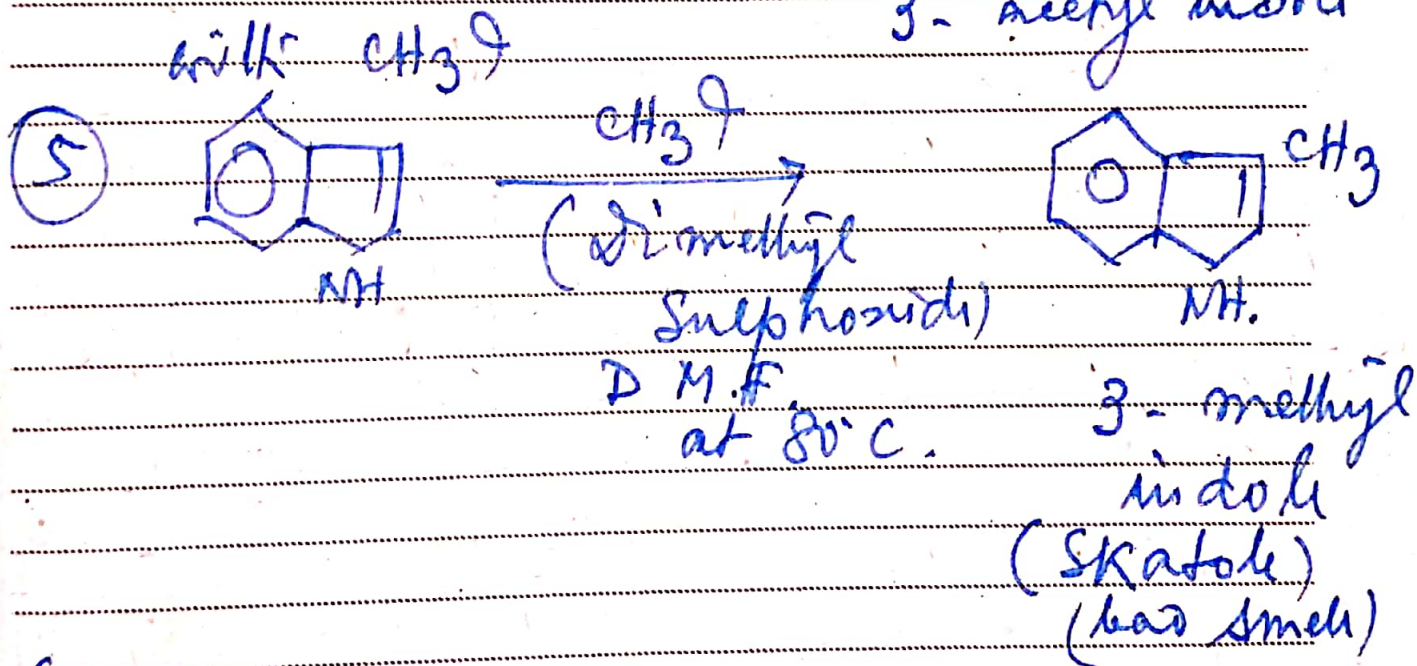 3- acetyl indole
with CH3I
5
CH3I
CH3
(Dimethyl
Sulphoxide)
NH
NH.
D M.F.
at 80°C.
3- methyl
indole
(Skatole)
(bad smell)